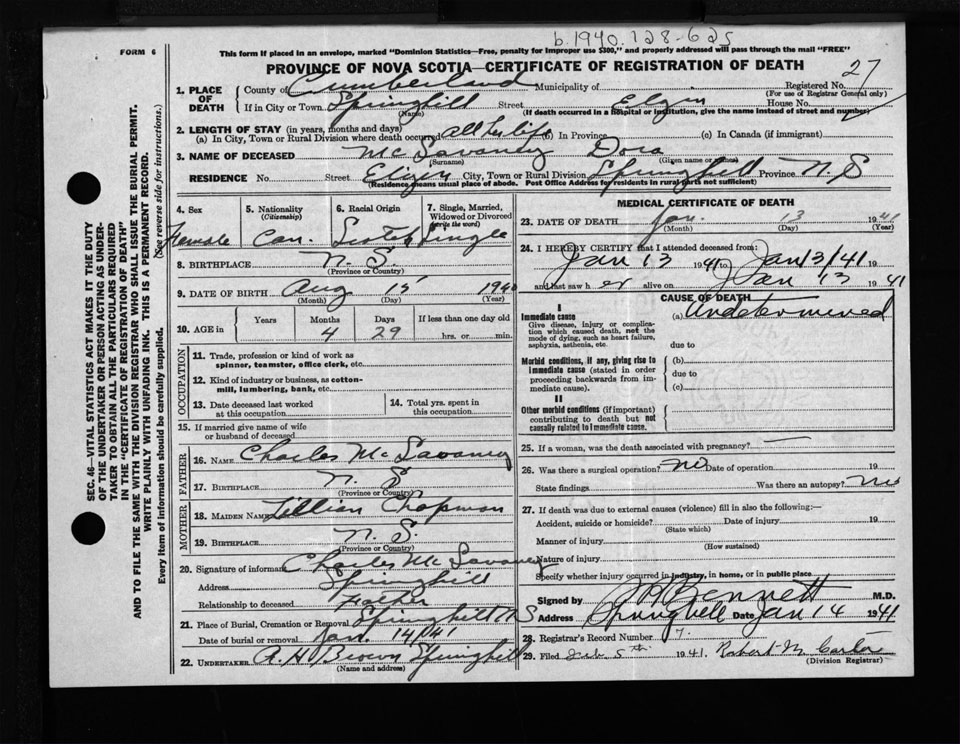 b. 1940. 128-625
FORM 6
This form if placed in an envelope, marked "Dominion Statistics—Free, penalty for improper use $300," and properly addressed will pass through the mail "FREE"
PROVINCE OF NOVA SCOTIA—CERTIFICATE OF REGISTRATION OF DEATH
27
1. PLACE OF DEATH
County of Cumberland Municipality of Registered No.
(For use of Registrar General only)
If in City or Town Springhill Street Elgin House No.
(Name) (If death occurred in a hospital or institution, give the name instead of street and number)
2. LENGTH OF STAY (in years, months and days)
(a) In City, Town or Rural Division where death occurred all her life (b) In Province (c) In Canada (if immigrant)
3. NAME OF DECEASED McSavaney Dora
(Surname) (Given name or names)
RESIDENCE No. Street Elizen City, Town or Rural Division Springhill Province N. S
(Residence means usual place of abode. Post Office Address for residents in rural parts not sufficient)
4. Sex
Female
5. Nationality
(Citizenship)
Can.
6. Racial Origin
Scotch
7. Single, Married, Widowed or Divorced
(write the word)
Single
8. BIRTHPLACE N. S.
(Province or Country)
9. DATE OF BIRTH Aug 15 1940
(Month) (Day) (Year)
10. AGE in
Years Months Days If less than one day old
4 29 hrs. or min.
OCCUPATION
11. Trade, profession or kind of work as
spinner, teamster, office clerk, etc.
12. Kind of industry or business, as cotton-
mill, lumbering, bank, etc.
13. Date deceased last worked
at this occupation
14. Total yrs. spent in
this occupation
15. If married give name of wife
or husband of deceased
FATHER
16. NAME Charles McSavaney
17. BIRTHPLACE N. S
(Province or Country)
MOTHER
18. MAIDEN NAME Lillian Chapman
19. BIRTHPLACE N. S.
(Province or Country)
20. Signature of informant Charles McSavaney
Address Springhill
Relationship to deceased Father
21. Place of Burial, Cremation or Removal Springhill N S
Date of burial or removal Jan. 14/41
22. UNDERTAKER A. H Brown Springhill
(Name and address)
MEDICAL CERTIFICATE OF DEATH
23. DATE OF DEATH Jan. 13 1941
(Month) (Day) (Year)
24. I HEREBY CERTIFY that I attended deceased from:
Jan 13 1941 to Jan 13/41 19
and last saw her alive on Jan 13 1941
CAUSE OF DEATH
I
Immediate cause
Give disease, injury or complica-
tion which caused death, not the
mode of dying, such as heart failure,
asphyxia, asthenia, etc.
(a) Undetermined
due to
Morbid conditions, if any, giving rise to
immediate cause (stated in order
proceeding backwards from im-
mediate cause).
(b)
due to
(c)
II
Other morbid conditions (if important)
contributing to death but not
causally related to immediate cause.
25. If a woman, was the death associated with pregnancy? —
26. Was there a surgical operation? No Date of operation 19
State findings Was there an autopsy? No
27. If death was due to external causes (violence) fill in also the following:—
Accident, suicide or homicide? Date of injury 19
(State which)
Manner of injury
(How sustained)
Nature of injury
Specify whether injury occurred in industry, in home, or in public place
Signed by Bennett M.D.
Address Springhill Date Jan 14 1941
28. Registrar's Record Number 7.
29. Filed Feb 5th 1941. Robert M Carter
(Division Registrar)
SEC. 46—VITAL STATISTICS ACT MAKES IT THE DUTY
OF THE UNDERTAKER OR PERSON ACTING AS UNDER-
TAKER TO OBTAIN ALL THE PARTICULARS REQUIRED
IN THE "CERTIFICATE OF REGISTRATION OF DEATH"
AND TO FILE THE SAME WITH THE DIVISION REGISTRAR WHO SHALL ISSUE THE BURIAL PERMIT.
WRITE PLAINLY WITH UNFADING INK. THIS IS A PERMANENT RECORD.
Every item of information should be carefully supplied. (See reverse side for instructions.)